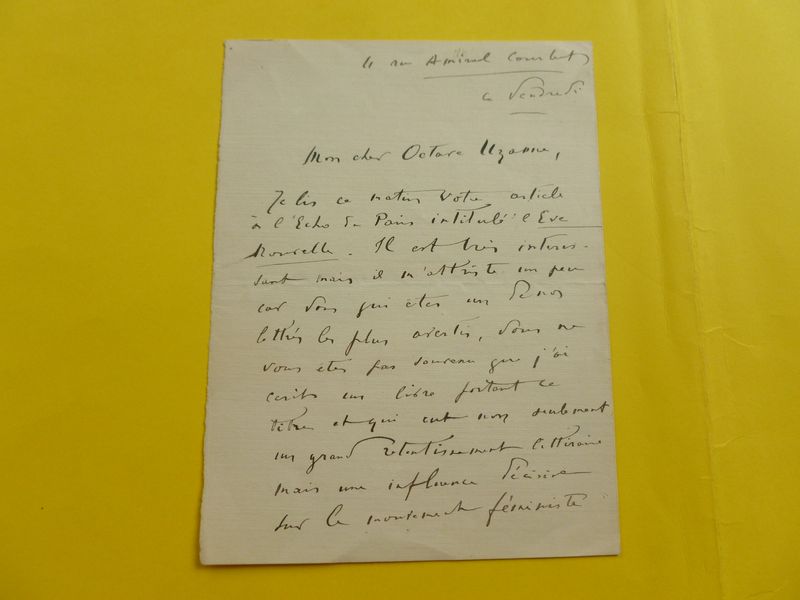 4 rue Amiral Courbet
ce Vendredi
Mon cher Octave Uzanne,
Je lis ce matin votre article
à l'Echo de Paris intitulé l'Eve
Nouvelle. Il est très interes-
sant mais il m'attriste un peu
car vous qui etes un de nos
lettrés les plus avertis, vous ne
vous etes pas souvenu que j'ai
ecrit un livre portant ce
titre et qui eut non seulement
un grand retentissement littéraire
mais une influence décisive
sur le mouvement féministe